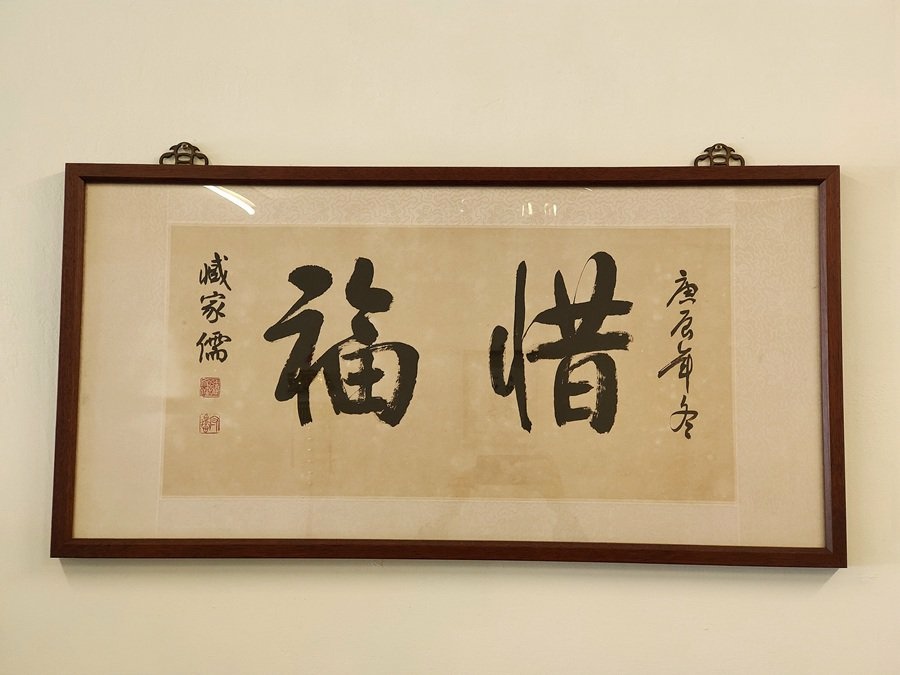 庚辰年冬
惜福
臧家儒